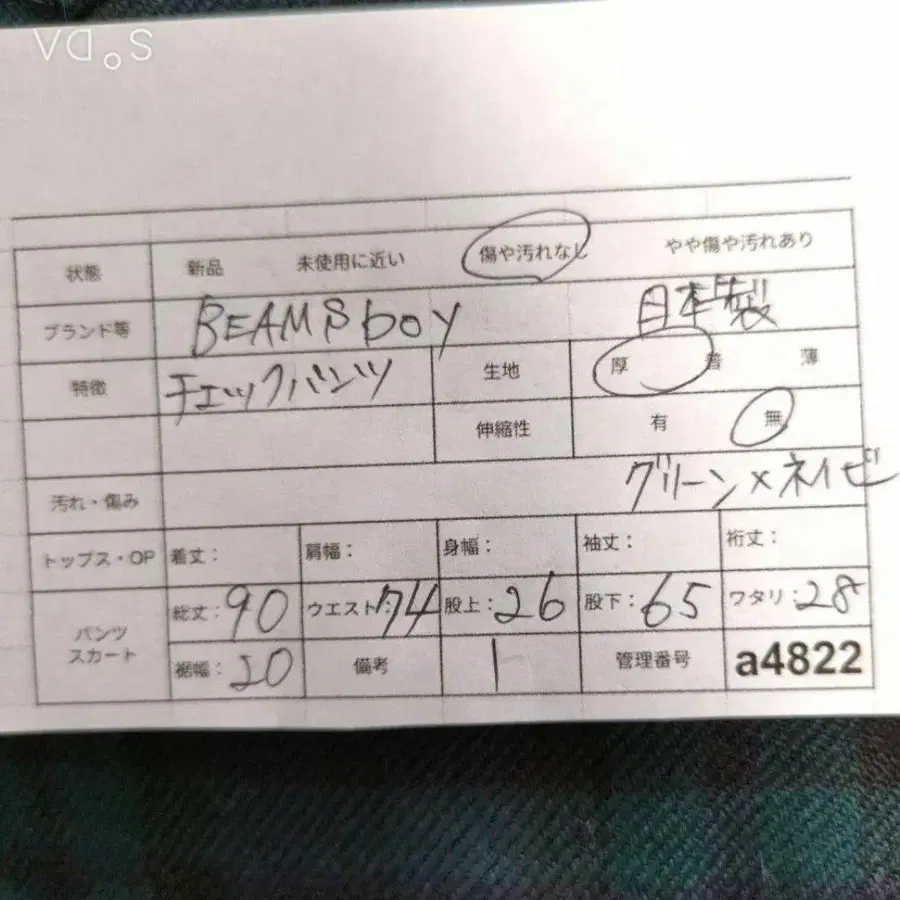 va。s
状態 新品 未使用に近い 傷や汚れなし やや傷や汚れあり
ブランド等 BEAMS boy 日本製
特徴 チェックパンツ 生地 厚 普 薄
伸縮性 有 無
汚れ・傷み グリーン×ネイビ
トップス・OP 着丈: 肩幅: 身幅: 袖丈: 裄丈:
パンツ スカート 総丈:90 ウエスト:74 股上:26 股下:65 ワタリ:28
裾幅:20 備考 1 管理番号 a4822